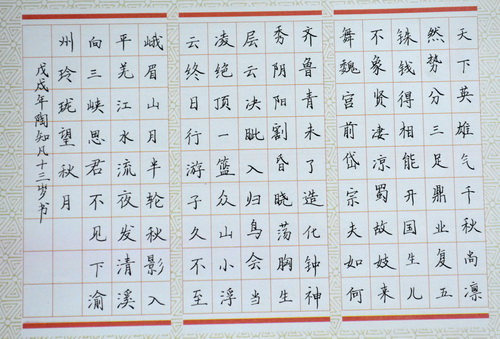 天下英雄气千秋尚凛
然势分三足鼎业复五
铢钱得相能开国生儿
不象贤凄凉蜀故妓来
舞魏宫前岱宗夫如何
齐鲁青未了造化钟神
秀阴阳割昏晓荡胸生
层云决眦入归鸟会当
凌绝顶一篮众山小浮
云终日行游子久不至
峨眉山月半轮秋影入
平羌江水流夜发清溪
向三峡思君不见下渝
州玲珑望秋月
戊戌年陶知凡十三岁书